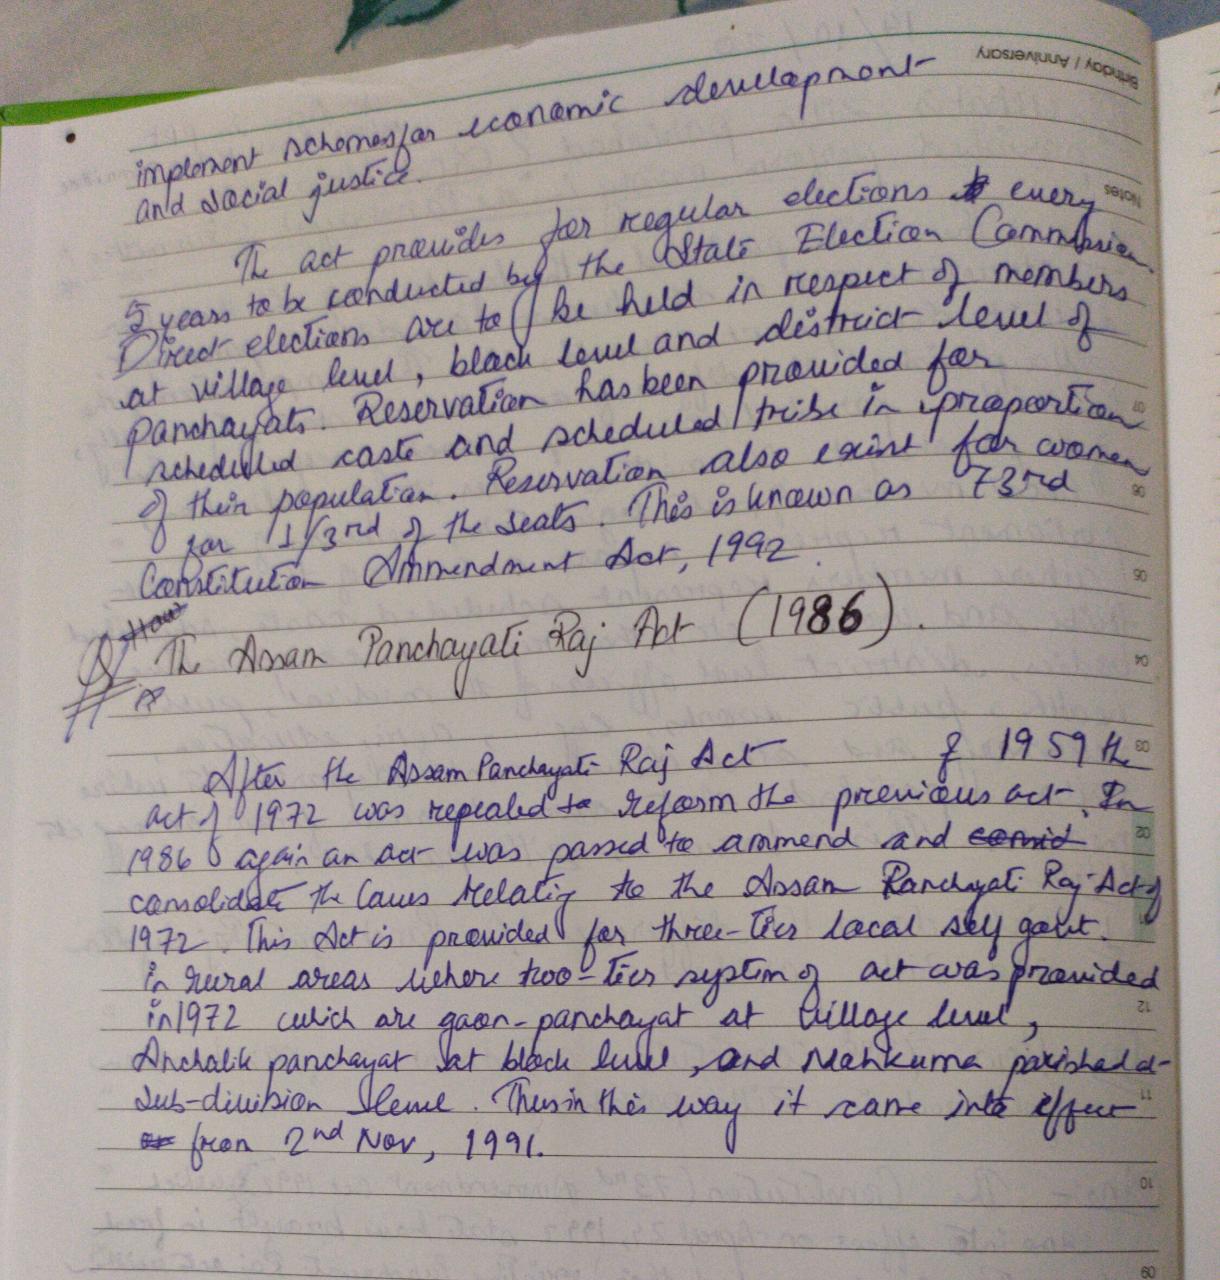 Birthday / Anniversary
implement schemes for economic development
and social justice.
Notes
The act provides for regular elections every
5 years to be conducted by the State Election Commission.
Direct elections are to be held in respect of members
at village level, block level and district level of
panchayats. Reservation has been provided for
scheduled caste and scheduled tribe in proportion
of their population. Reservation also exist for women
for 1/3rd of the seats. This is known as 73rd
Constitution Ammendment Act, 1992.
Q. The Assam Panchayati Raj Act (1986).
After the Assam Panchayati Raj Act of 1959 the
act of 1972 was repealed to reform the previous act. In
1986 again an act was passed to ammend and
consolidate the laws relating to the Assam Panchayati Raj Act of
1972. This Act is provided for three-tier local self govt.
in rural areas where two-tier system of act was provided
in 1972 which are gaon-panchayat at village level,
Anchalik panchayat at block level, and Mahkuma parishad at
sub-division level. Thus in this way it came into effect
from 2nd Nov, 1991.
07
06
05
04
03
02
12
11
10
09